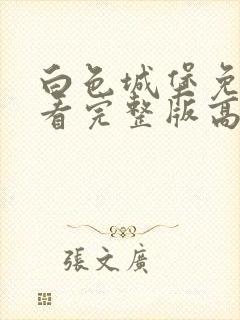 白色城堡免
看完整版高
張文廣